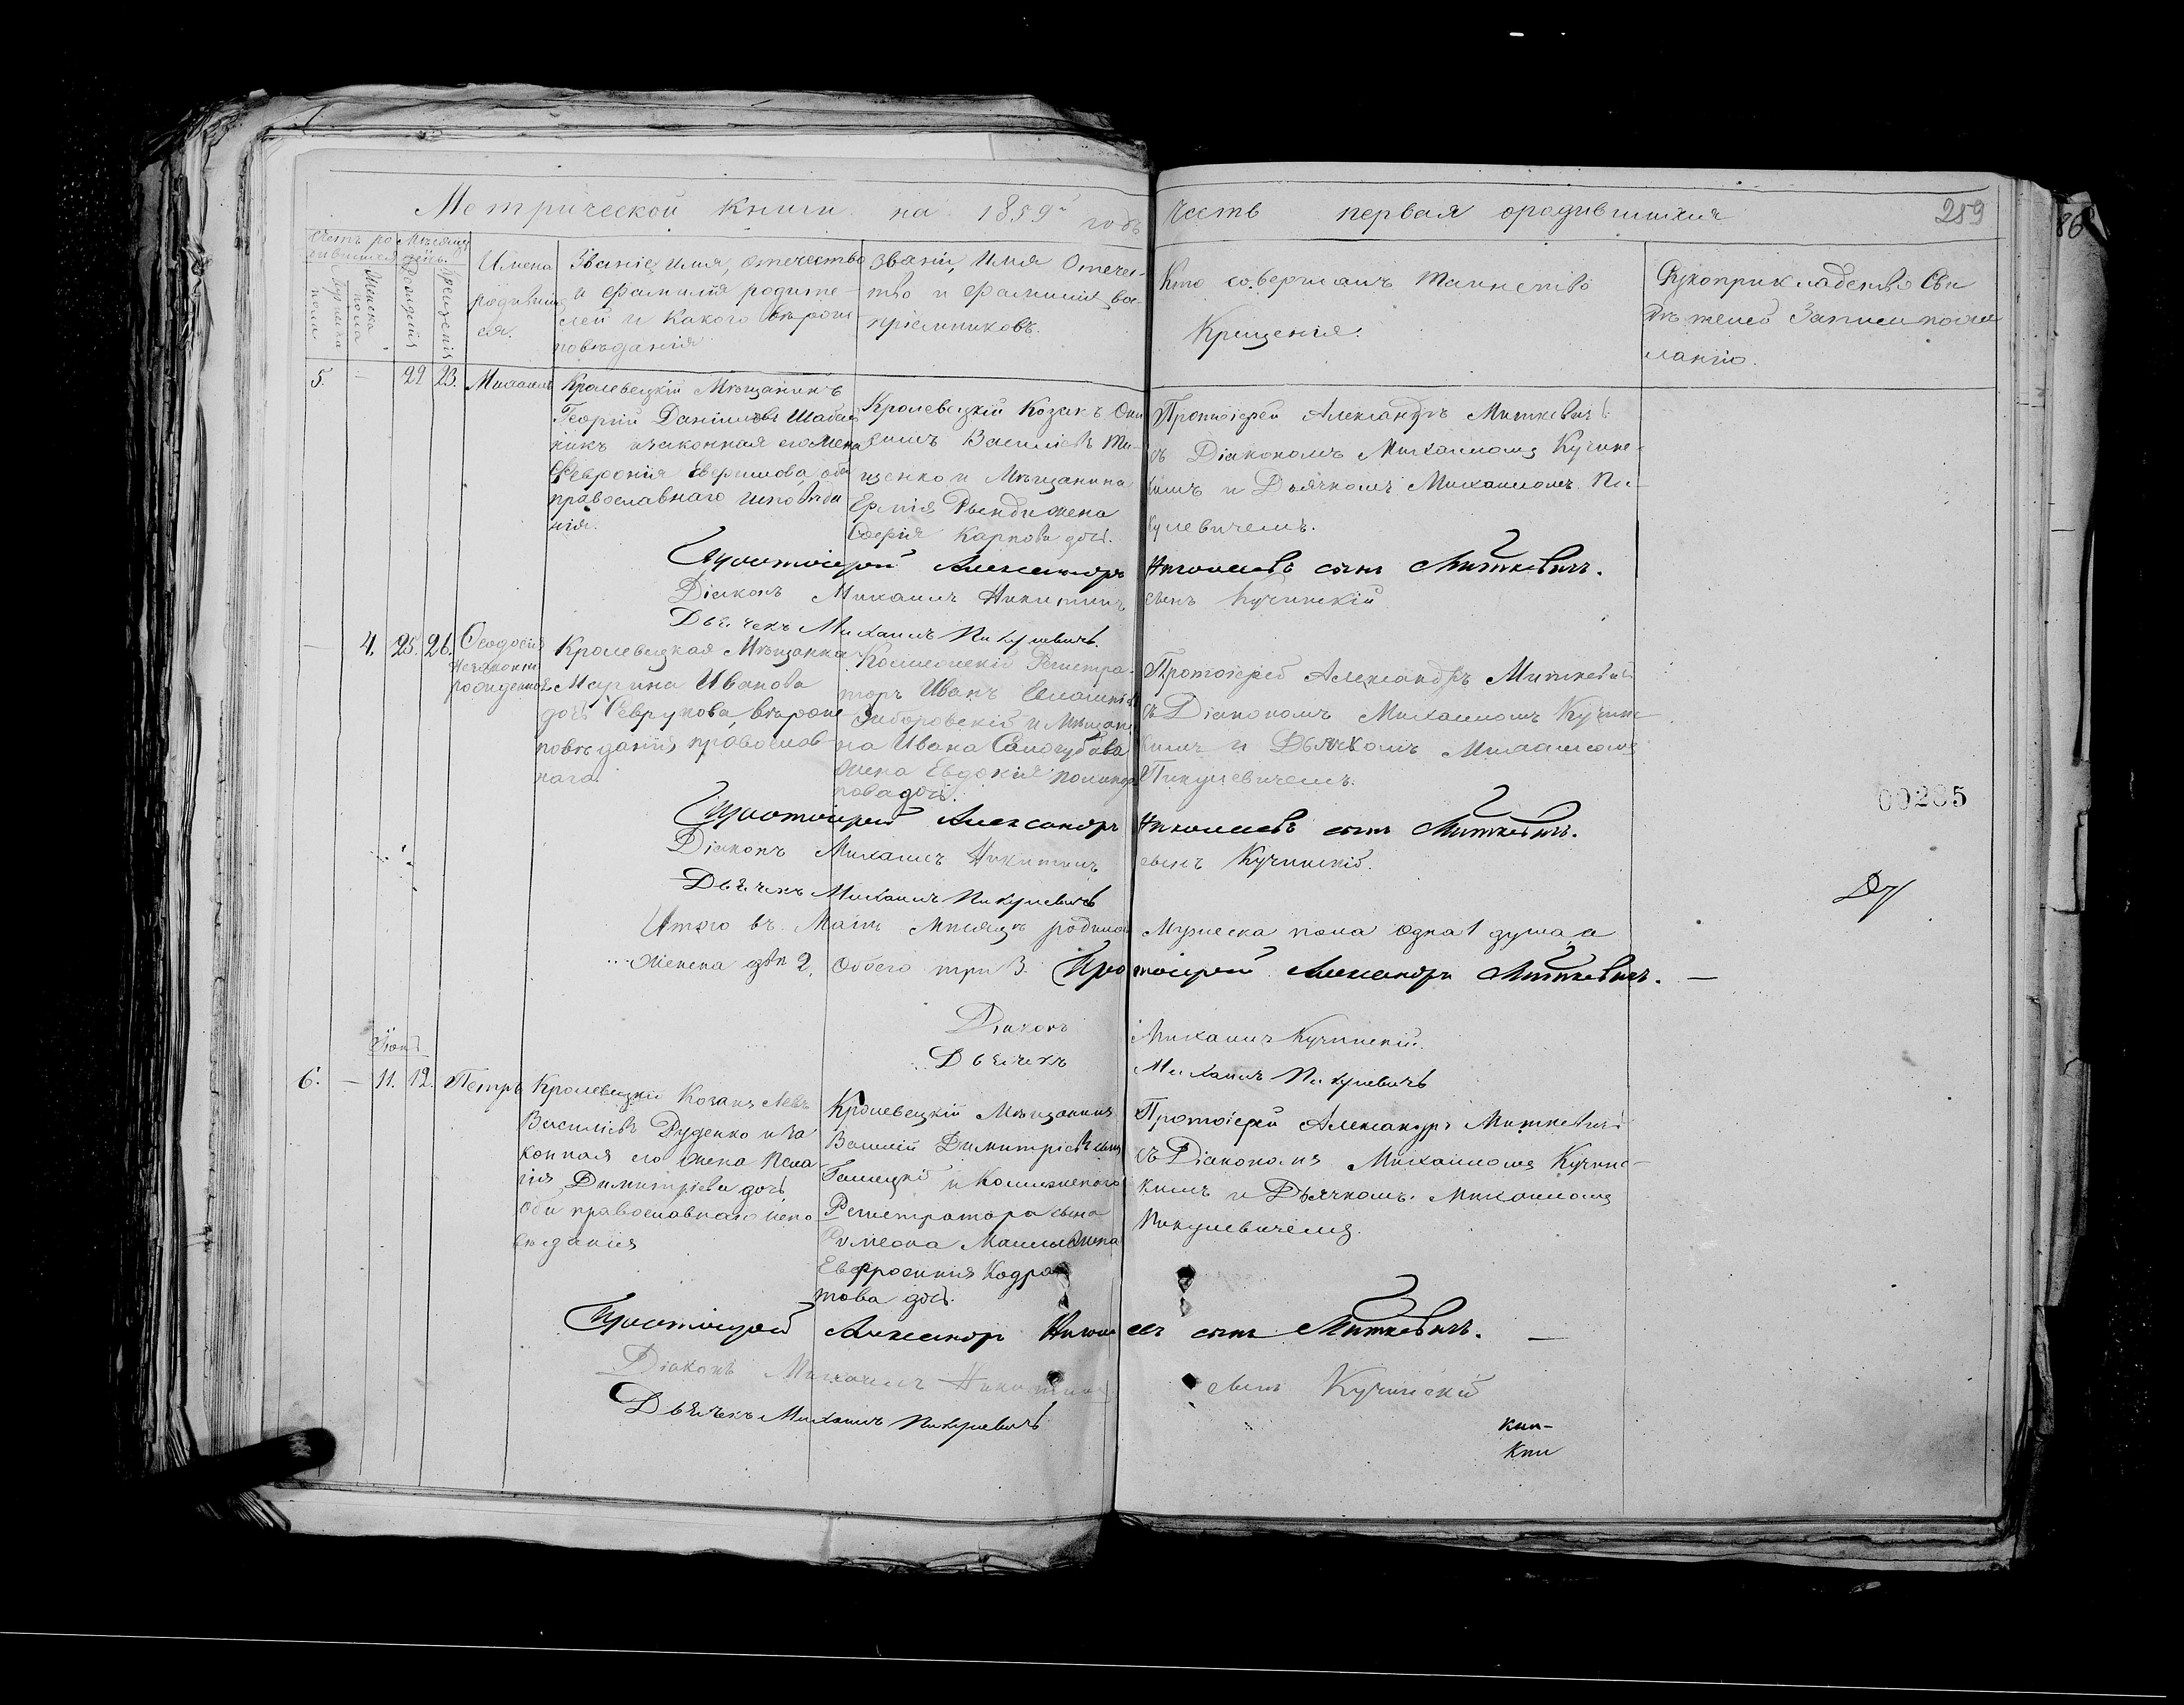 Метрической книги на 1859й годъ
Часть первая о родившихся
259
86
Счетъ родившихся
Мѣсяцъ и день
Мужеска пола
Женска пола
Рожденія
Крещенія
Имена
родивших
ся.
Званіе, имя, отечество
и фамилія родите
лей и какого вѣроис
повѣданія
Званіе, имя отечес-
тво и фамилія вос
пріемниковъ.
Кто совершалъ таинство
Крещенія.
Рукоприкладство сви
дѣтелей записи по же
ланію.
5. — 22 23. Михаилъ
Кролевецкій Мѣщанинъ
Георгій Даніиловъ
и законная его жена
Феѵронія обa
православнаго исповѣда
нія.
Кролевецкій Козакъ Они
симъ Василіевъ Ти-
щенко и Мѣщанина
жена
Софія Карпова дочь.
Протоіерей Александръ Миткевичъ
съ Діакономъ Михаиломъ Кучинс-
кимъ и Дьячкомъ Михаиломъ Пи-
кулевичемъ.
Протоіерей Александръ Николаевъ сынъ Миткевичъ.
Діаконъ Михаилъ Никитинъ сынъ Кучинскій
Дьячекъ Михаилъ Пикулевичъ.
— 4. 25. 26. Ѳеодосія
незаконно
рожденная
Кролевецкая Мѣщанка
Марина Иванова
дочь вѣроис
повѣданія православ-
наго.
Коллежскій Регистра-
торъ Иванъ
Заборовскій и Мѣщани
на Ивана
жена Евдокія
пова дочь.
Протоіерей Александръ Миткевичъ
съ Діакономъ Михаиломъ Кучинс
кимъ и Дьячкомъ Михаиломъ
Пикулевичемъ.
00285
Протоіерей Александръ Николаевъ сынъ Миткевичъ.
Діаконъ Михаилъ Никитинъ сынъ Кучинскій.
Дьячекъ Михаилъ Пикулевичъ
Итого въ Маіѣ мѣсяцѣ родилось Мужеска пола одна 1 душа, а
женска двѣ 2, обоего три 3. Протоіерей Александръ Миткевичъ. —
Діаконъ Михаилъ Кучинскій.
Дьячекъ Михаилъ Пикулевичъ
6. — 11. 12. Петръ
Кролевецкій Козакъ Левъ
Василіевъ Руденко и за
конная его жена Пела
гія Димитріева дочь,
оба православнаго испо
вѣданія
Кролевецкій Мѣщанинъ
Василій Димитріевъ сынъ
и Коллежскаго
Регистратора сына
жена
Евфросинія Кодра
това дочь.
Протоіерей Александръ Миткевичъ
съ Діакономъ Михаиломъ Кучинс-
кимъ и Дьячкомъ Михаиломъ
Пикулевичемъ.
Протоіерей Александръ Николаевъ сынъ Миткевичъ. —
Діаконъ Михаилъ Никитинъ сынъ Кучинскій
Дьячекъ Михаилъ Пикулевичъ